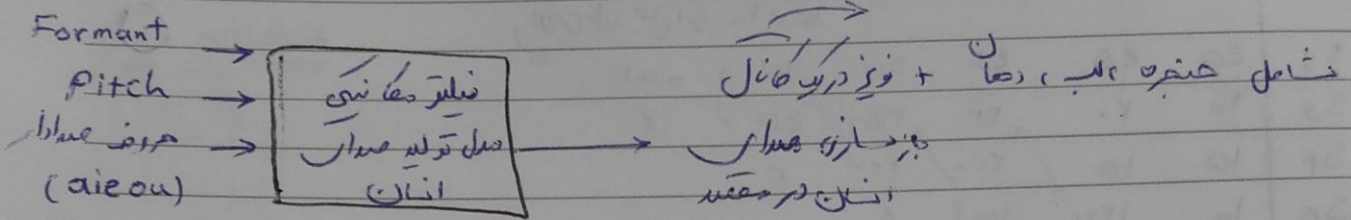 Formant
Pitch
حروف صدادار
(aieou)
فیلتر مکانیکی
مدل تولید صدای
انسان
شامل حنجره، لب، دهان + نویز در یک کانال
باز سازی صدای
انسان در مقصد